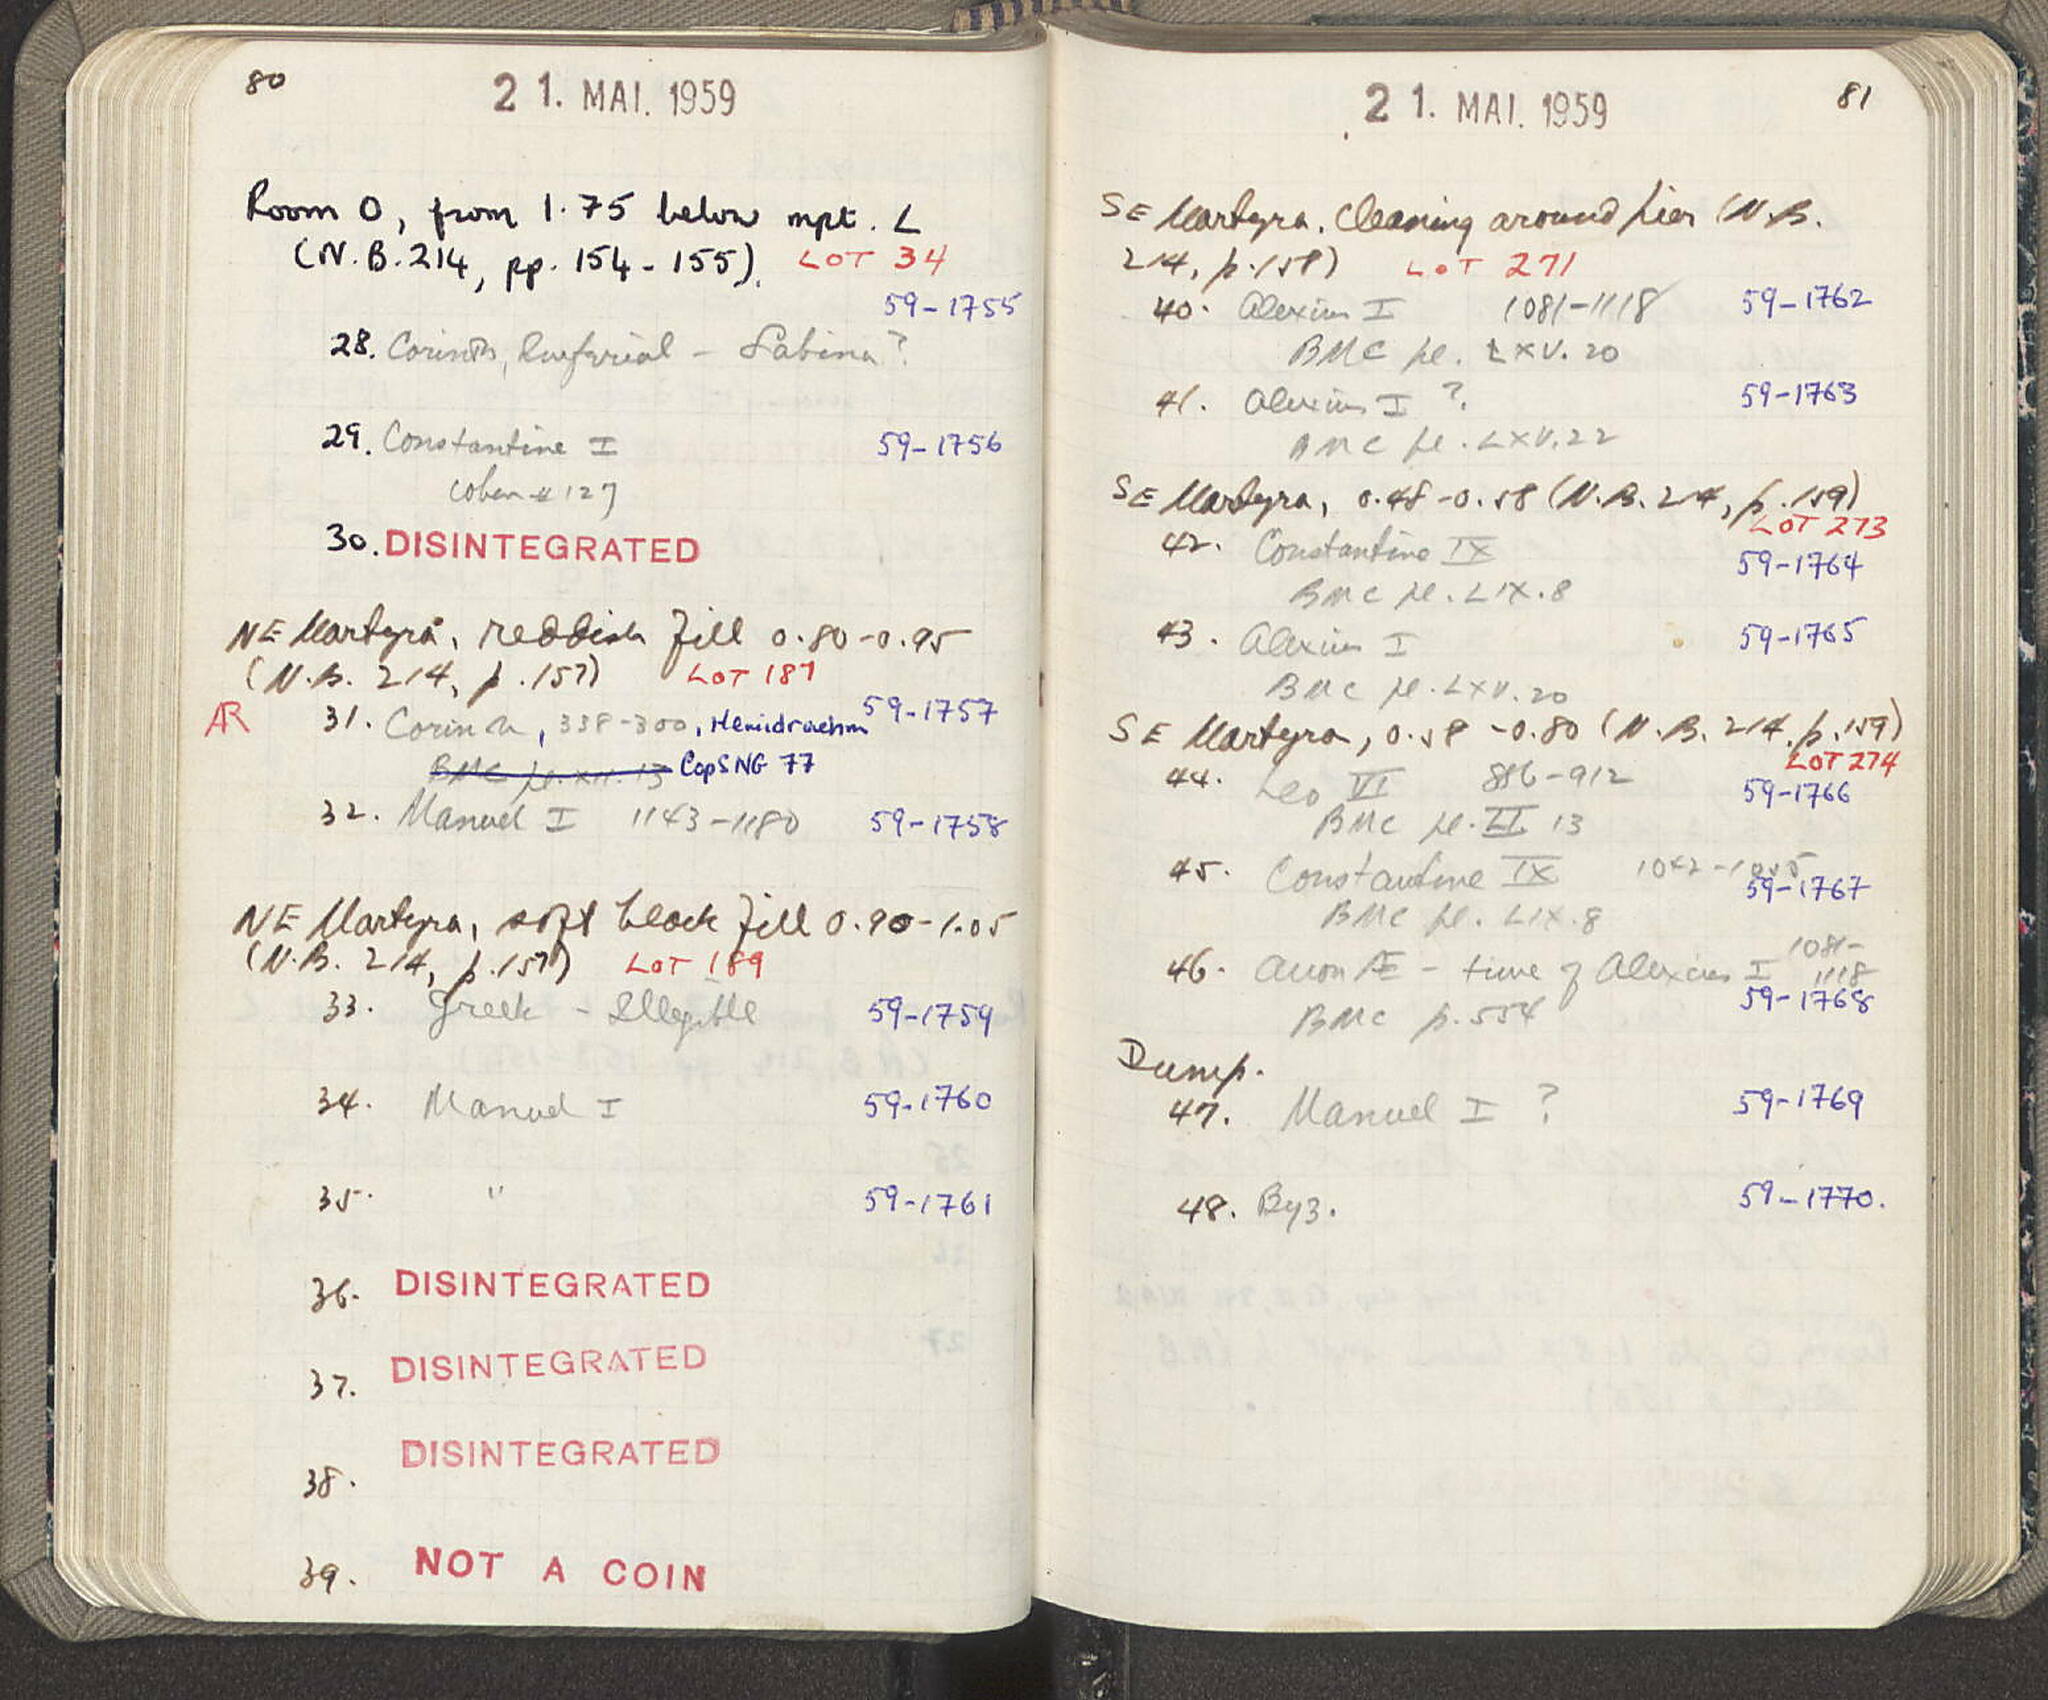 80
21. MAI. 1959
Room O, from 1.75 below mpt. L
(N.B. 214, pp. 154-155). LOT 34
59-1755
28. Corinth, Imperial - Sabina?
29. Constantine I 59-1756
Cohen # 127
30. DISINTEGRATED
NE Martyra, reddish fill 0.80-0.95
(N.B. 214, p.157) LOT 187
AR 31. Corinth, 338-300, Hemidrachm 59-1757
BMC pl. XII. 13 CopSNG 77
32. Manuel I 1143-1180 59-1758
NE Martyra, soft black fill 0.90-1.05
(N.B. 214, p.157) LOT 189
33. Greek - Illegible 59-1759
34. Manuel I 59-1760
35. " 59-1761
36. DISINTEGRATED
37. DISINTEGRATED
38. DISINTEGRATED
39. NOT A COIN
21. MAI. 1959
81
SE Martyra. Cleaning around pier (N.B.
214, p.158) LOT 271
40. Alexius I 1081-1118 59-1762
BMC pl. LXV. 20
41. Alexius I ? 59-1763
BMC pl. LXV. 22
SE Martyra, 0.48-0.58 (N.B. 214, p.159)
LOT 273
42. Constantine IX 59-1764
BMC pl. LIX. 8
43. Alexius I 59-1765
BMC pl. LXV. 20
SE Martyra, 0.58-0.80 (N.B. 214, p.159)
LOT 274
44. Leo VI 886-912 59-1766
BMC pl. LI 13
45. Constantine IX 1042-1055
59-1767
BMC pl. LIX. 8
46. Anon Æ - time of Alexius I 1081-
1118
59-1768
BMC p. 554
Dump.
47. Manuel I ? 59-1769
48. Byz. 59-1770.